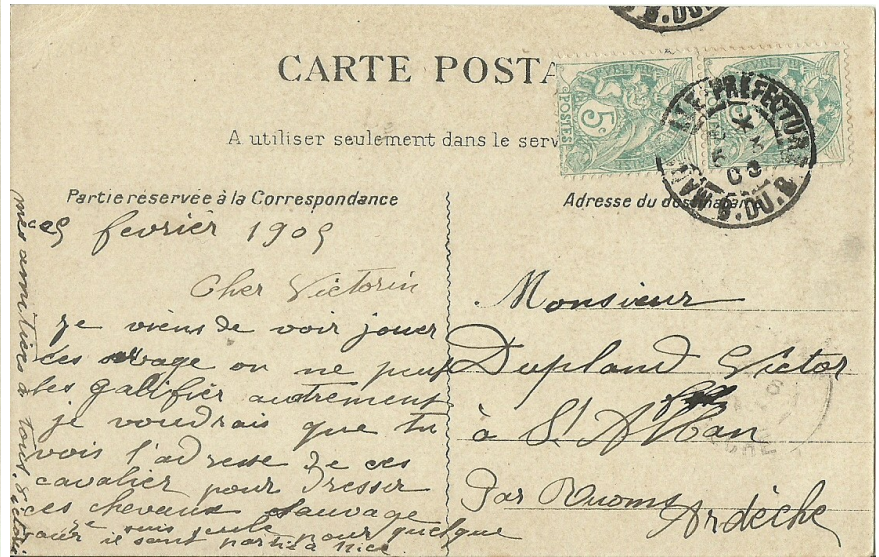 CARTE POSTA
A utiliser seulement dans le serv
Partie réservée à la Correspondance
Adresse du des
POSTES
5c
PRÉFECTUR
B.DU.R
B.DU.R
ce 5 fevrier 1905
Cher Victorin
je viens de voir jouer
ces on ne peut
les galifier autrement
je voudrais que tu
vois l'adresse de ces
cavalier pour dresser
ces chevaux sauvage
je suis seule pour quelque
jour il sont partis à Nice
mes amitiers à tous. Victorin
Monsieur
Dupland Victor
à St Alban
Par Ruoms
Ardèche